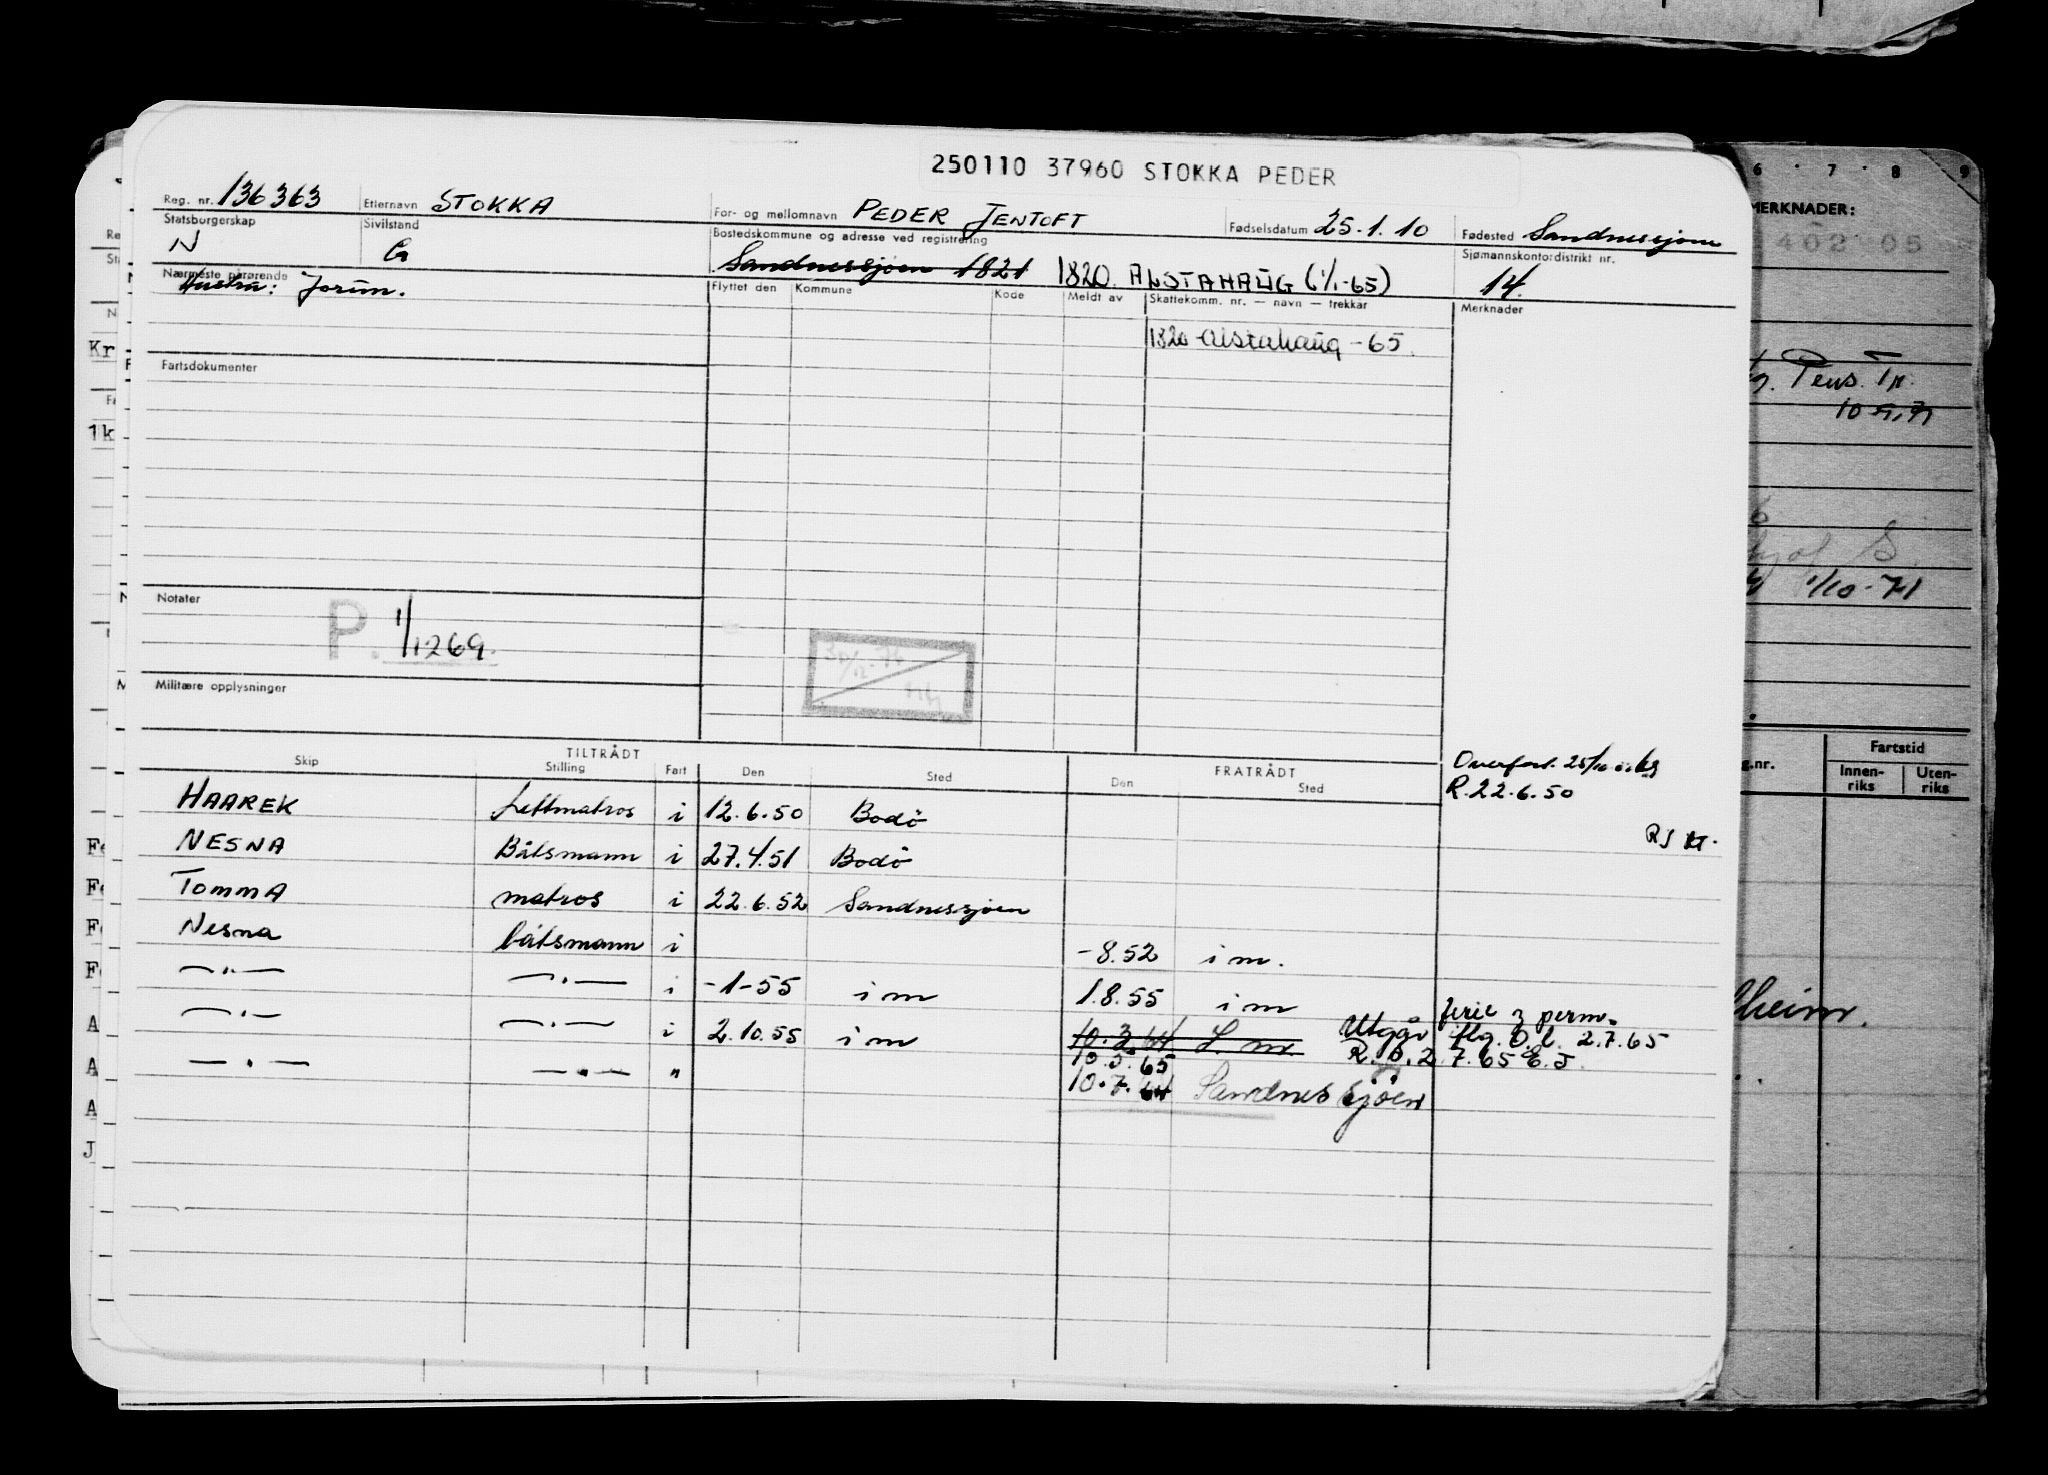 250110 37960 STOKKA PEDER
Reg. nr. 136363 Etternavn STOKKA For- og mellomnavn PEDER JENTOFT Fødselsdatum 25.1.10 Fødested Sandnessjøen
Statsborgerskap N Sivilstand G Bostedskommune og adresse ved registrering Sandnessjøen 1821 1820 ALSTAHAUG (1/1-65) Sjømannskontordistrikt nr. 14.
Nærmeste pårørende Hustru: Jorun.
Flyttet den Kommune Kode Meldt av Skattekomm. nr. — navn — trekkår Merknader
1820 Alstahaug -65.
Fartsdokumenter
Notater
P. 1/1269.
Militære opplysninger
TILTRÅDT FRATRÅDT
Skip Stilling Fart Den Sted Den Sted
R. 22.6.50
HAAREK Lettmatros i 12.6.50 Bodö
NESNA Båtsmann i 27.4.51 Bodö
TOMMA matros i 22.6.52 Sandnessjøen
Nesna båtsmann i -8.52 i m.
—"— —"— i -1-55 i m 1.8.55 i m
ferie & perm.
—"— —"— i 2.10.55 i m 10.3.64 Utgår flg. D.l. 2.7.65
10.5.65 R.D. 2.7.65 E.J.
—"— —"— " 10.7.64 Sandnessjöen
6 7 8 9
MERKNADER:
402 05
Pens. Tr.
1/10-71
Fartstid
Innen-
riks
Uten-
riks
Kr
1k
A
A
A
J